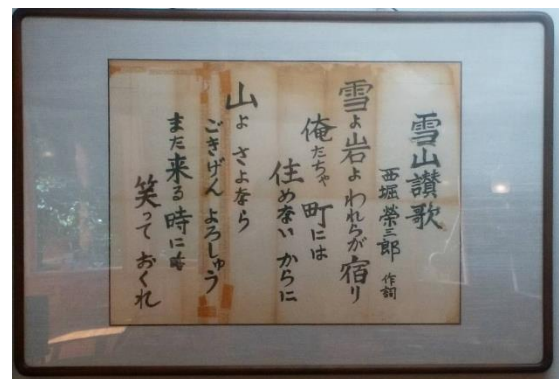 雪山讃歌
西堀榮三郎 作詞
雪よ岩よ われらが宿り
俺たちゃ 町には
住めない からに
山よ さよなら
ごきげん よろしゅう
また来る時に
笑って おくれ